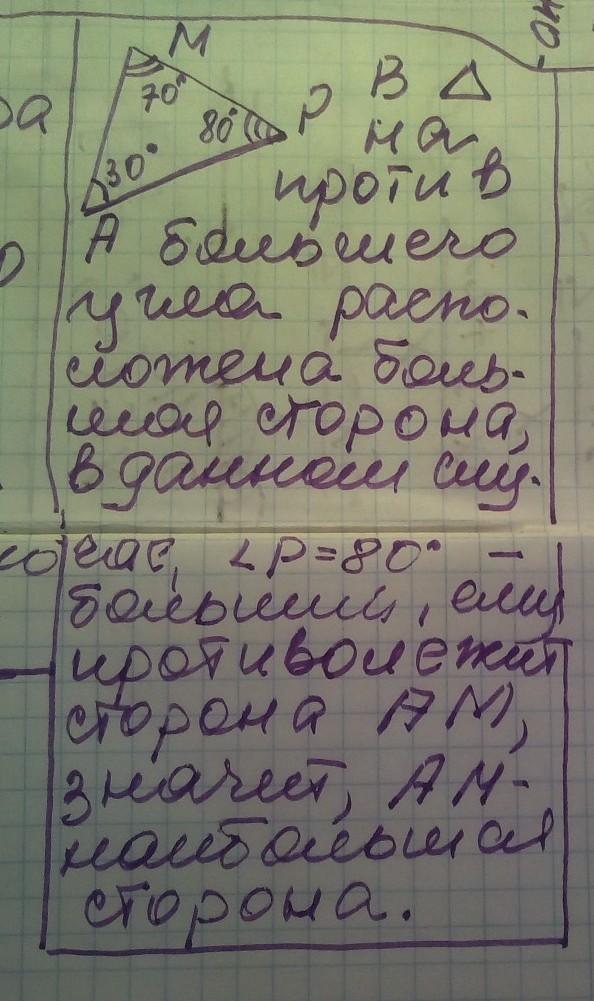 М
70°
80°
Р
30°
А
В △
на
против
большего
угла распо-
ложена боль-
шая сторона,
в данном слу-
чае, ∠Р=80° –
больший, ему
противолежит
сторона АМ,
значит, АМ-
наибольшая
сторона.